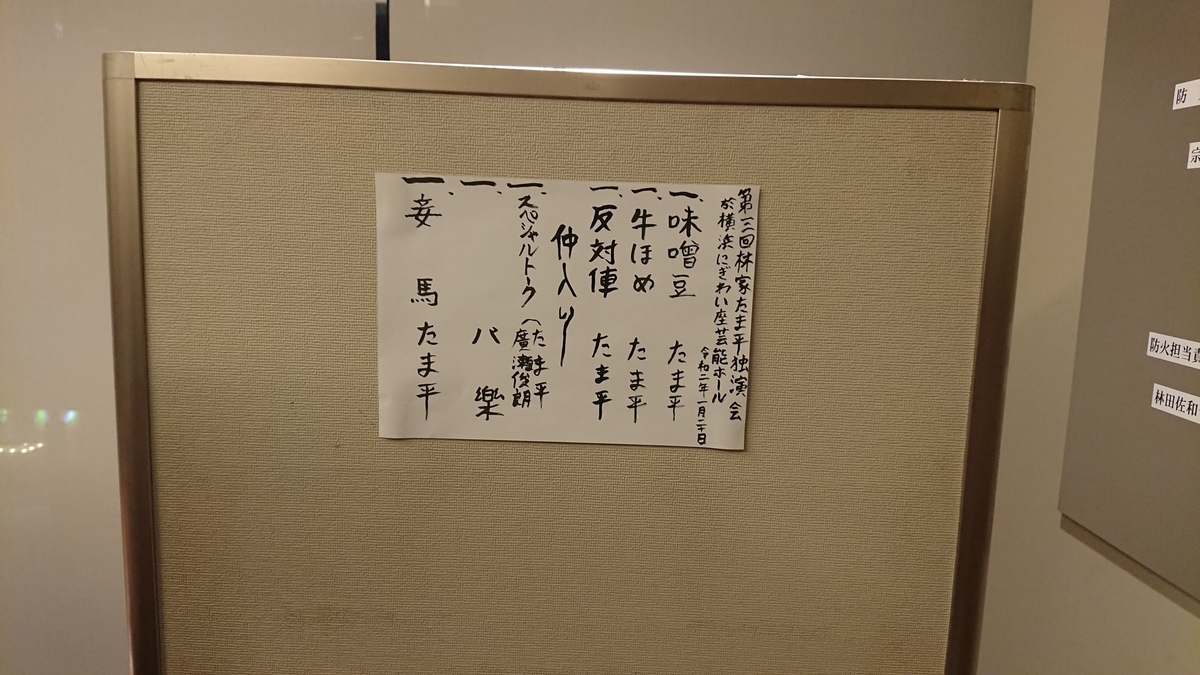 第一三回林家たま平独演会
於横浜にぎわい座芸能ホール
令和二年一月二十日
一、味噌豆 たま平
一、牛ほめ たま平
一、反対俥 たま平
仲入り
一、スペシャルトーク(たま平
廣瀬俊朗
一、バ 樂
一、妾 馬 たま平
防
宗
防火担当責
林田佐和